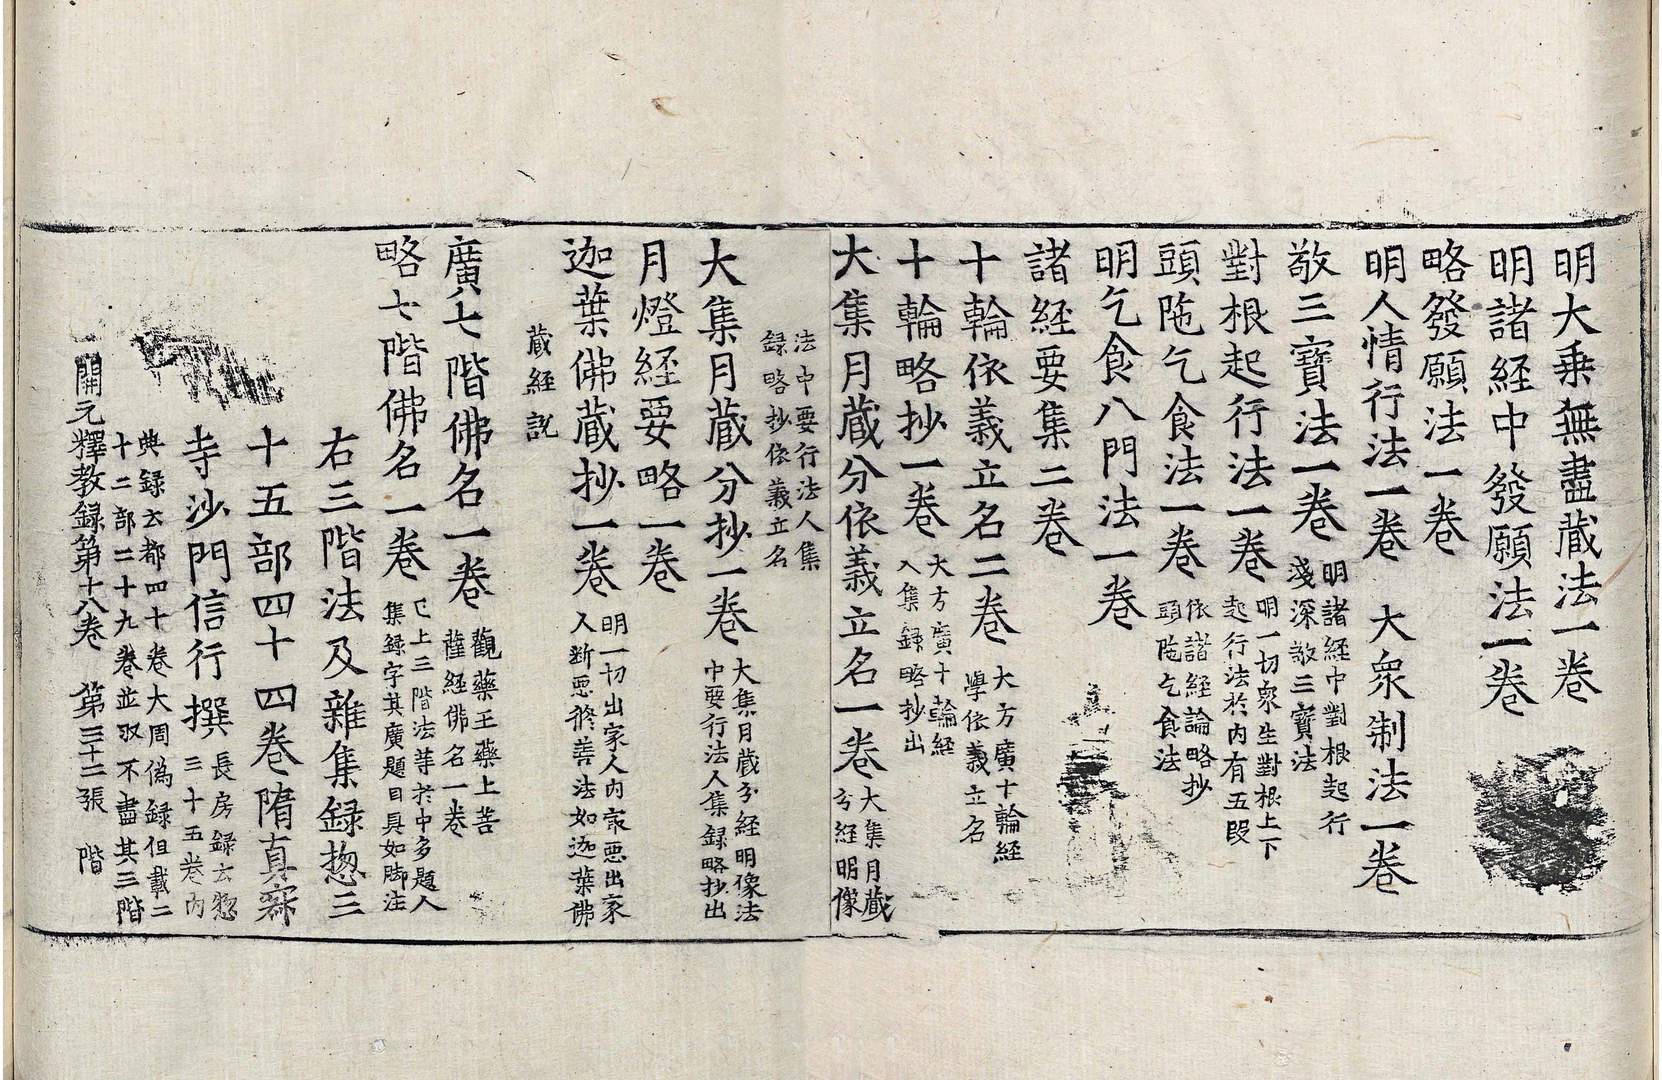 明大乗無盡蔵法一巻
明諸経中發願法一巻
略發願法一巻
明人情行法一巻 大衆制法一巻
敬三寶法一巻 明諸経中對根起行
淺深敬三寶法
對根起行法一巻 明一切衆生對根上下
起行法於内有五段
頭陁乞食法一巻 依諸経論略抄
頭陁乞食法
明乞食八門法一巻
諸経要集二巻
十輪依義立名二巻 大方廣十輪経
學依義立名
十輪略抄一巻 大方廣十輪経
入集録略抄出
大集月蔵分依義立名一巻 大集月蔵
分経明像
法中要行法人集
録略抄依義立名
大集月蔵分抄一巻 大集月蔵分経明像法
中要行法人集録略抄出
月燈経要略一巻
迦葉佛蔵抄一巻 明一切出家人内宼惡出家
人断惡脩善法如迦葉佛
蔵経説
廣七階佛名一巻 觀藥王藥上菩
薩経佛名一巻
略七階佛名一巻 已上三階法等於中多題人
集録字其廣題目具如脚注
右三階法及雜集録惣三
十五部四十四巻隋真寂
寺沙門信行撰 長房録云惣
三十五巻内
典録云都四十巻大周偽録但載二
十二部二十九巻並収不盡其三階
開元釋教録第十八巻 第三十二張 階